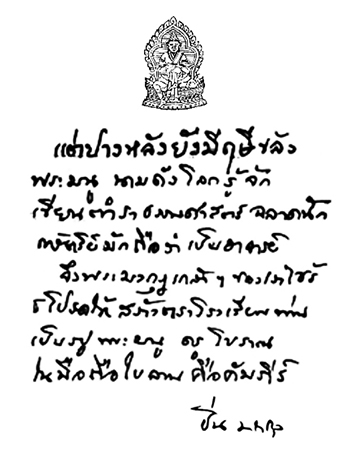 แต่ปางหลังยังมีฤษีขลัง
พระมนู นามดังโลกรู้จัก
เขียนตำราธรรมศาสตร์ ฉลาดนัก
กษัตริย์มักถือว่าเป็นอาจารย์
จึงพระมงกุฎเกล้าฯ ของเราไซร้
ธโปรดให้ สร้างตราโรงเรียนท่าน
เป็นรูป พระมนู ครู โบราณ
ในมือถือใบลาน คือคัมภีร์
ปิ่น